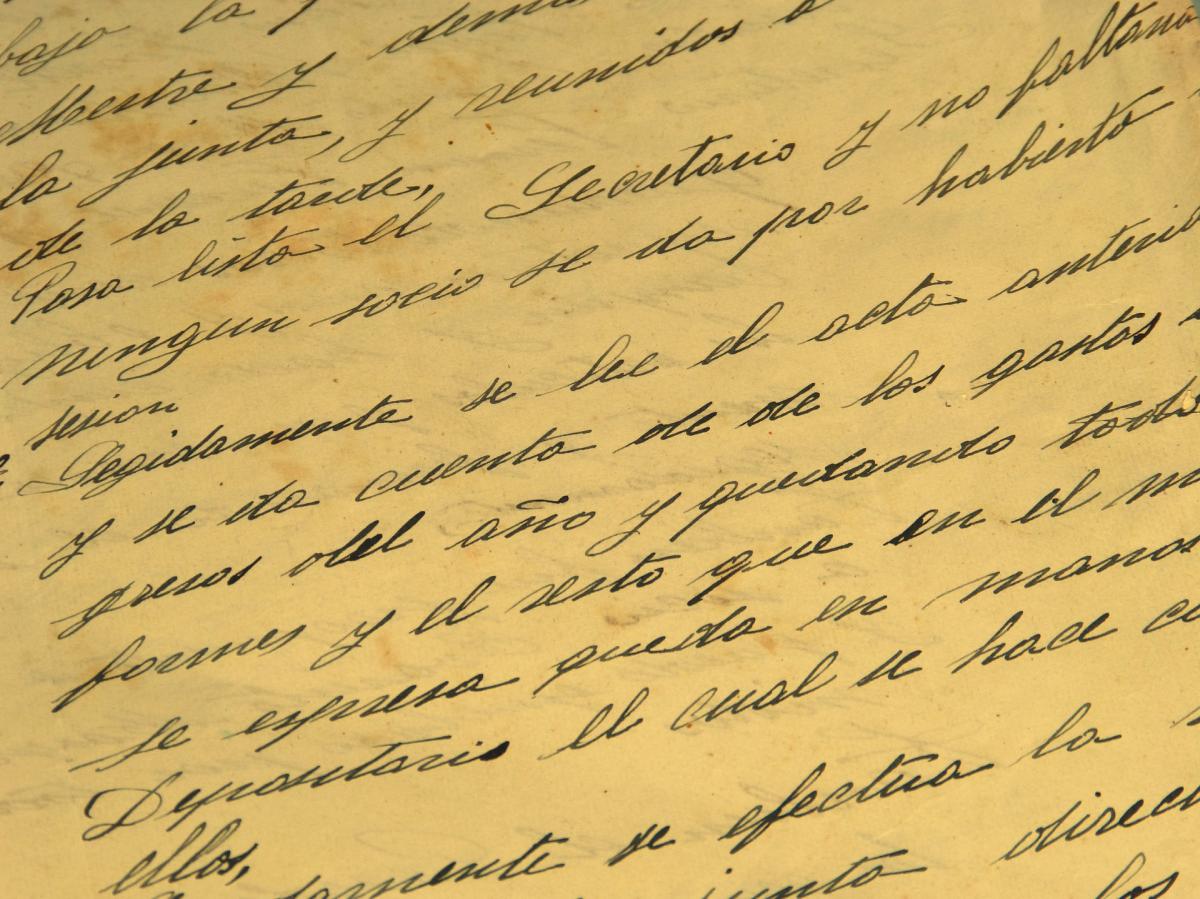 bajo la
Mestre y demas
la junta, y reunidos a
de la tarde,
Pasa lista el Secretario y no faltando
ningun socio se da por habierto
sesion
Segidamente se lee el acta anterio
y se da cuenta de de los gastos
gresos del año y quedando todo
formes y el resto que en el m
se espresa queda en manos
Depositario el cual se hace ca
ellos,
se efectua la
junta direc
los